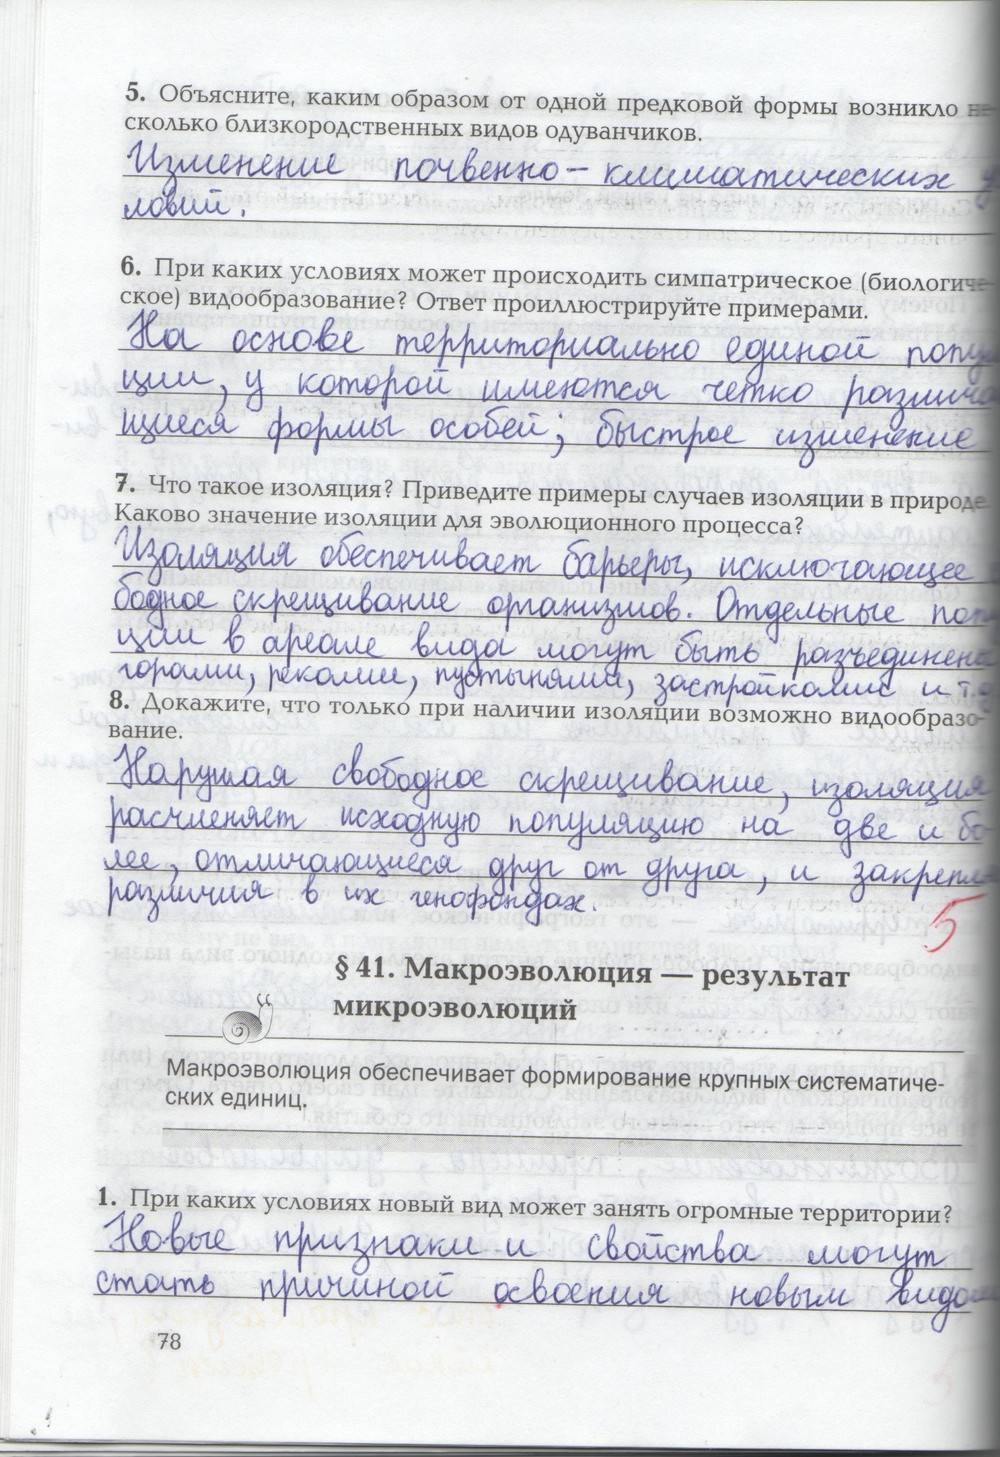 5. Объясните, каким образом от одной предковой формы возникло не-
сколько близкородственных видов одуванчиков.
Изменение почвенно-климатических ус
ловий.
6. При каких условиях может происходить симпатрическое (биологиче-
ское) видообразование? Ответ проиллюстрируйте примерами.
На основе территориально единой попул
ции, у которой имеются четко различа
щиеся формы особей; быстрое изменение
7. Что такое изоляция? Приведите примеры случаев изоляции в природе.
Каково значение изоляции для эволюционного процесса?
Изоляция обеспечивает барьеры, исключающее
бодное скрещивание организмов. Отдельные попу
ции в ареале вида могут быть разъединены
горами, реками, пустынями, застройками и т.д
8. Докажите, что только при наличии изоляции возможно видообразо-
вание.
Нарушая свободное скрещивание, изоляция
расчленяет исходную популяцию на две и бо
лее, отличающиеся друг от друга, и закрепля
различия в их генофондах.
5
§ 41. Макроэволюция — результат
микроэволюций
Макроэволюция обеспечивает формирование крупных систематиче-
ских единиц.
1. При каких условиях новый вид может занять огромные территории?
Новые признаки и свойства могут
стать причиной освоения новым видом
78